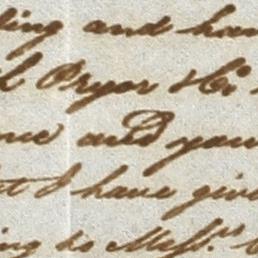 ling and han
Pryor & Co
me and your
t I have give
ing to Mess.rs